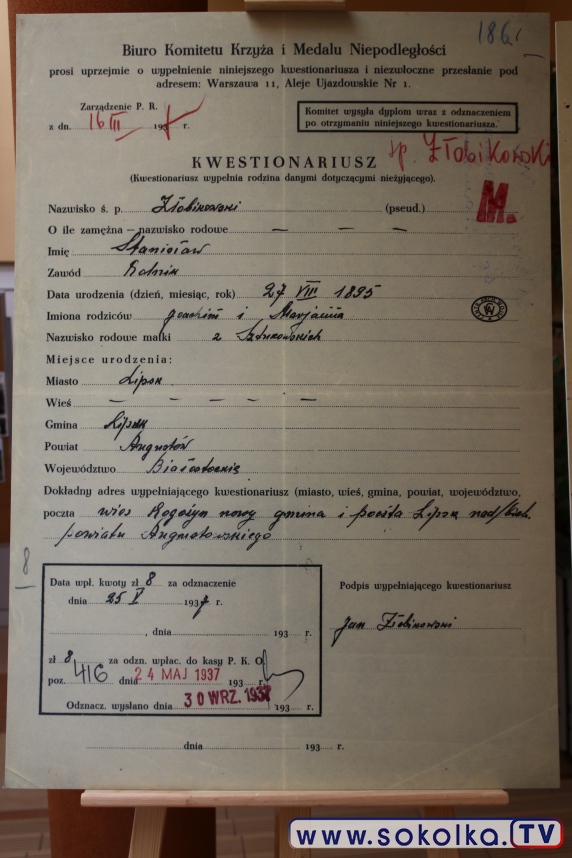 186.
Biuro Komitetu Krzyża i Medalu Niepodległości
prosi uprzejmie o wypełnienie niniejszego kwestionariusza i niezwłoczne przesłanie pod
adresem: Warszawa 11, Aleje Ujazdowskie Nr 1.
Zarządzenie P. R.
z dn. 16 III 1937 r.
Komitet wysyła dyplom wraz z odznaczeniem
po otrzymaniu niniejszego kwestionariusza.
śp. Złobikowski
KWESTIONARIUSZ
(Kwestionariusz wypełnia rodzina danymi dotyczącymi nieżyjącego).
M.
Nazwisko ś. p. Złobikowski (pseud.)
O ile zamężna — nazwisko rodowe — — —
Imię Stanisław
Zawód Rolnik
Data urodzenia (dzień, miesiąc, rok) 27 VIII 1895
Imiona rodziców Joachim i Marjanna
Nazwisko rodowe matki z
Miejsce urodzenia:
Miasto Lipsk
Wieś — — — — —
Gmina Lipsk
Powiat Augustów
Województwo Białostockie
Dokładny adres wypełniającego kwestionariusz (miasto, wieś, gmina, powiat, województwo,
poczta wieś Rogożyn nowy gmina i poczta Lipsk nad/Bieb.
powiatu Augustowskiego
8
Data wpł. kwoty zł 8 za odznaczenie
dnia 25 V 1937 r.
, dnia 193 r.
zł 8 za odzn. wpłac. do kasy P. K. O.
poz. 416 dnia 24 MAJ 1937 193 r.
Odznacz. wysłano dnia 30 WRZ. 1937 193 r.
Podpis wypełniającego kwestionariusz
Jan Złobikowski
dnia 193 r.
www.sokolka.TV